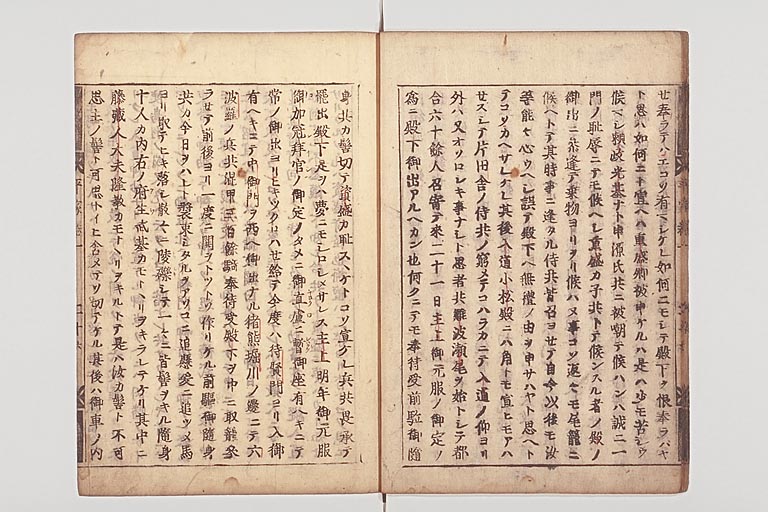 せ奉ラテハエコソ有ヘシケレ如何ニモシテ殿下ヲ恨奉ラハヤ
ト思ハ如何ニト宣ヘハ重盛卿被申ケルハ是ハ少モ苦シウ
候ヘシ頼政光基ナト申源氏共ニ被嘲テ候ハンハ誠ニ一
門ノ恥辱ニテモ候ヘシ重盛カ子共トテ候ンスル者ノ殿ノ
御出ニ参逢テ乗物ヨリヲリ候ハヌ事コソ返々モ尾籠ニ
候ヘトテ其時事ニ逢タル侍共皆召ヨセテ自今以後モ汝
等能々心ウヘシ誤テ殿下ヘ無礼ノ由ヲ申サハヤト思ヘトテ
テコソカヘサレケレ其後入道小松殿ニハ角トモ宣ヒモアハ
セスシテ片田舎ノ侍共ノ窮メテコハラカニテ入道ノ仰ヨリ
外ハ又オソロシキ事ナシト思者共難波瀬尾ヲ始トシテ都
合六十餘人召寄テ来二十一日主上御元服ノ御定ノ
為ニ殿下御出アルヘカン也何クニテモ奉待受前駈御随
身共カ髻切テ資盛カ恥スヽケトコソ宣ケレ兵共畏承テ
罷出殿下是ヲハ夢ニモシロシメサレス主上明年御元服
御加冠拝官ノ御定ノタメニ御直盧ニ暫御座有ヘキニテ
常ノ御出ヨリヒキツクロハせ給テ今度ハ待賢門ヨリ入御
有ヘキニテ中御門ヲ西ヘ御出ナル猪熊堀川ノ邊ニテ六
波羅ノ兵共混甲三百餘騎奉待受殿下ヲ中ニ取籠参
ラせテ前後ヨリ一度ニ閧ヲトツトソ作リケル前駆御随身
共カ今日ヲハレト装束シタルヲアソコニ追懸爰ニ追ツメ馬
ヨリ取テヒキ落シ散々ニ陵礫シテ一々ニ皆髻ヲキル随身
十人カ内右ノ府生武基カモトヽリヲキラレテケリ其中ニ
藤蔵人大夫隆教カモトヽリヲキルトテ是ハ汝カ髻ト不可
思主ノ髻ト可思トイヒ含メテソ切テケル其後ハ御車ノ内